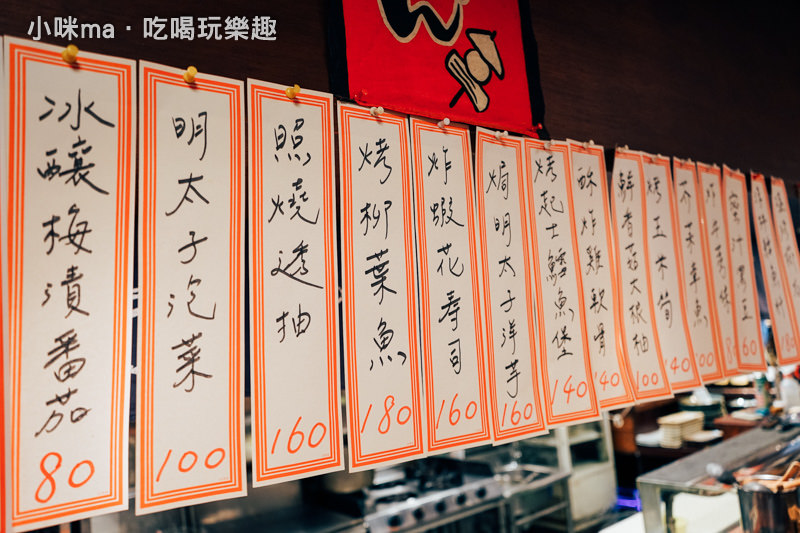 小咪ma·吃喝玩樂趣
冰釀梅漬番茄 80
明太子泡菜 100
照燒透抽 160
烤柳葉魚 180
炸蝦花壽司 160
焗明太子洋芋 160
烤起士鱈魚堡 140
酥炸雞軟骨 140
鮮香菇大根抽 100
烤玉米筍 140
章魚 100
80
蜜汁黑豆 60
80